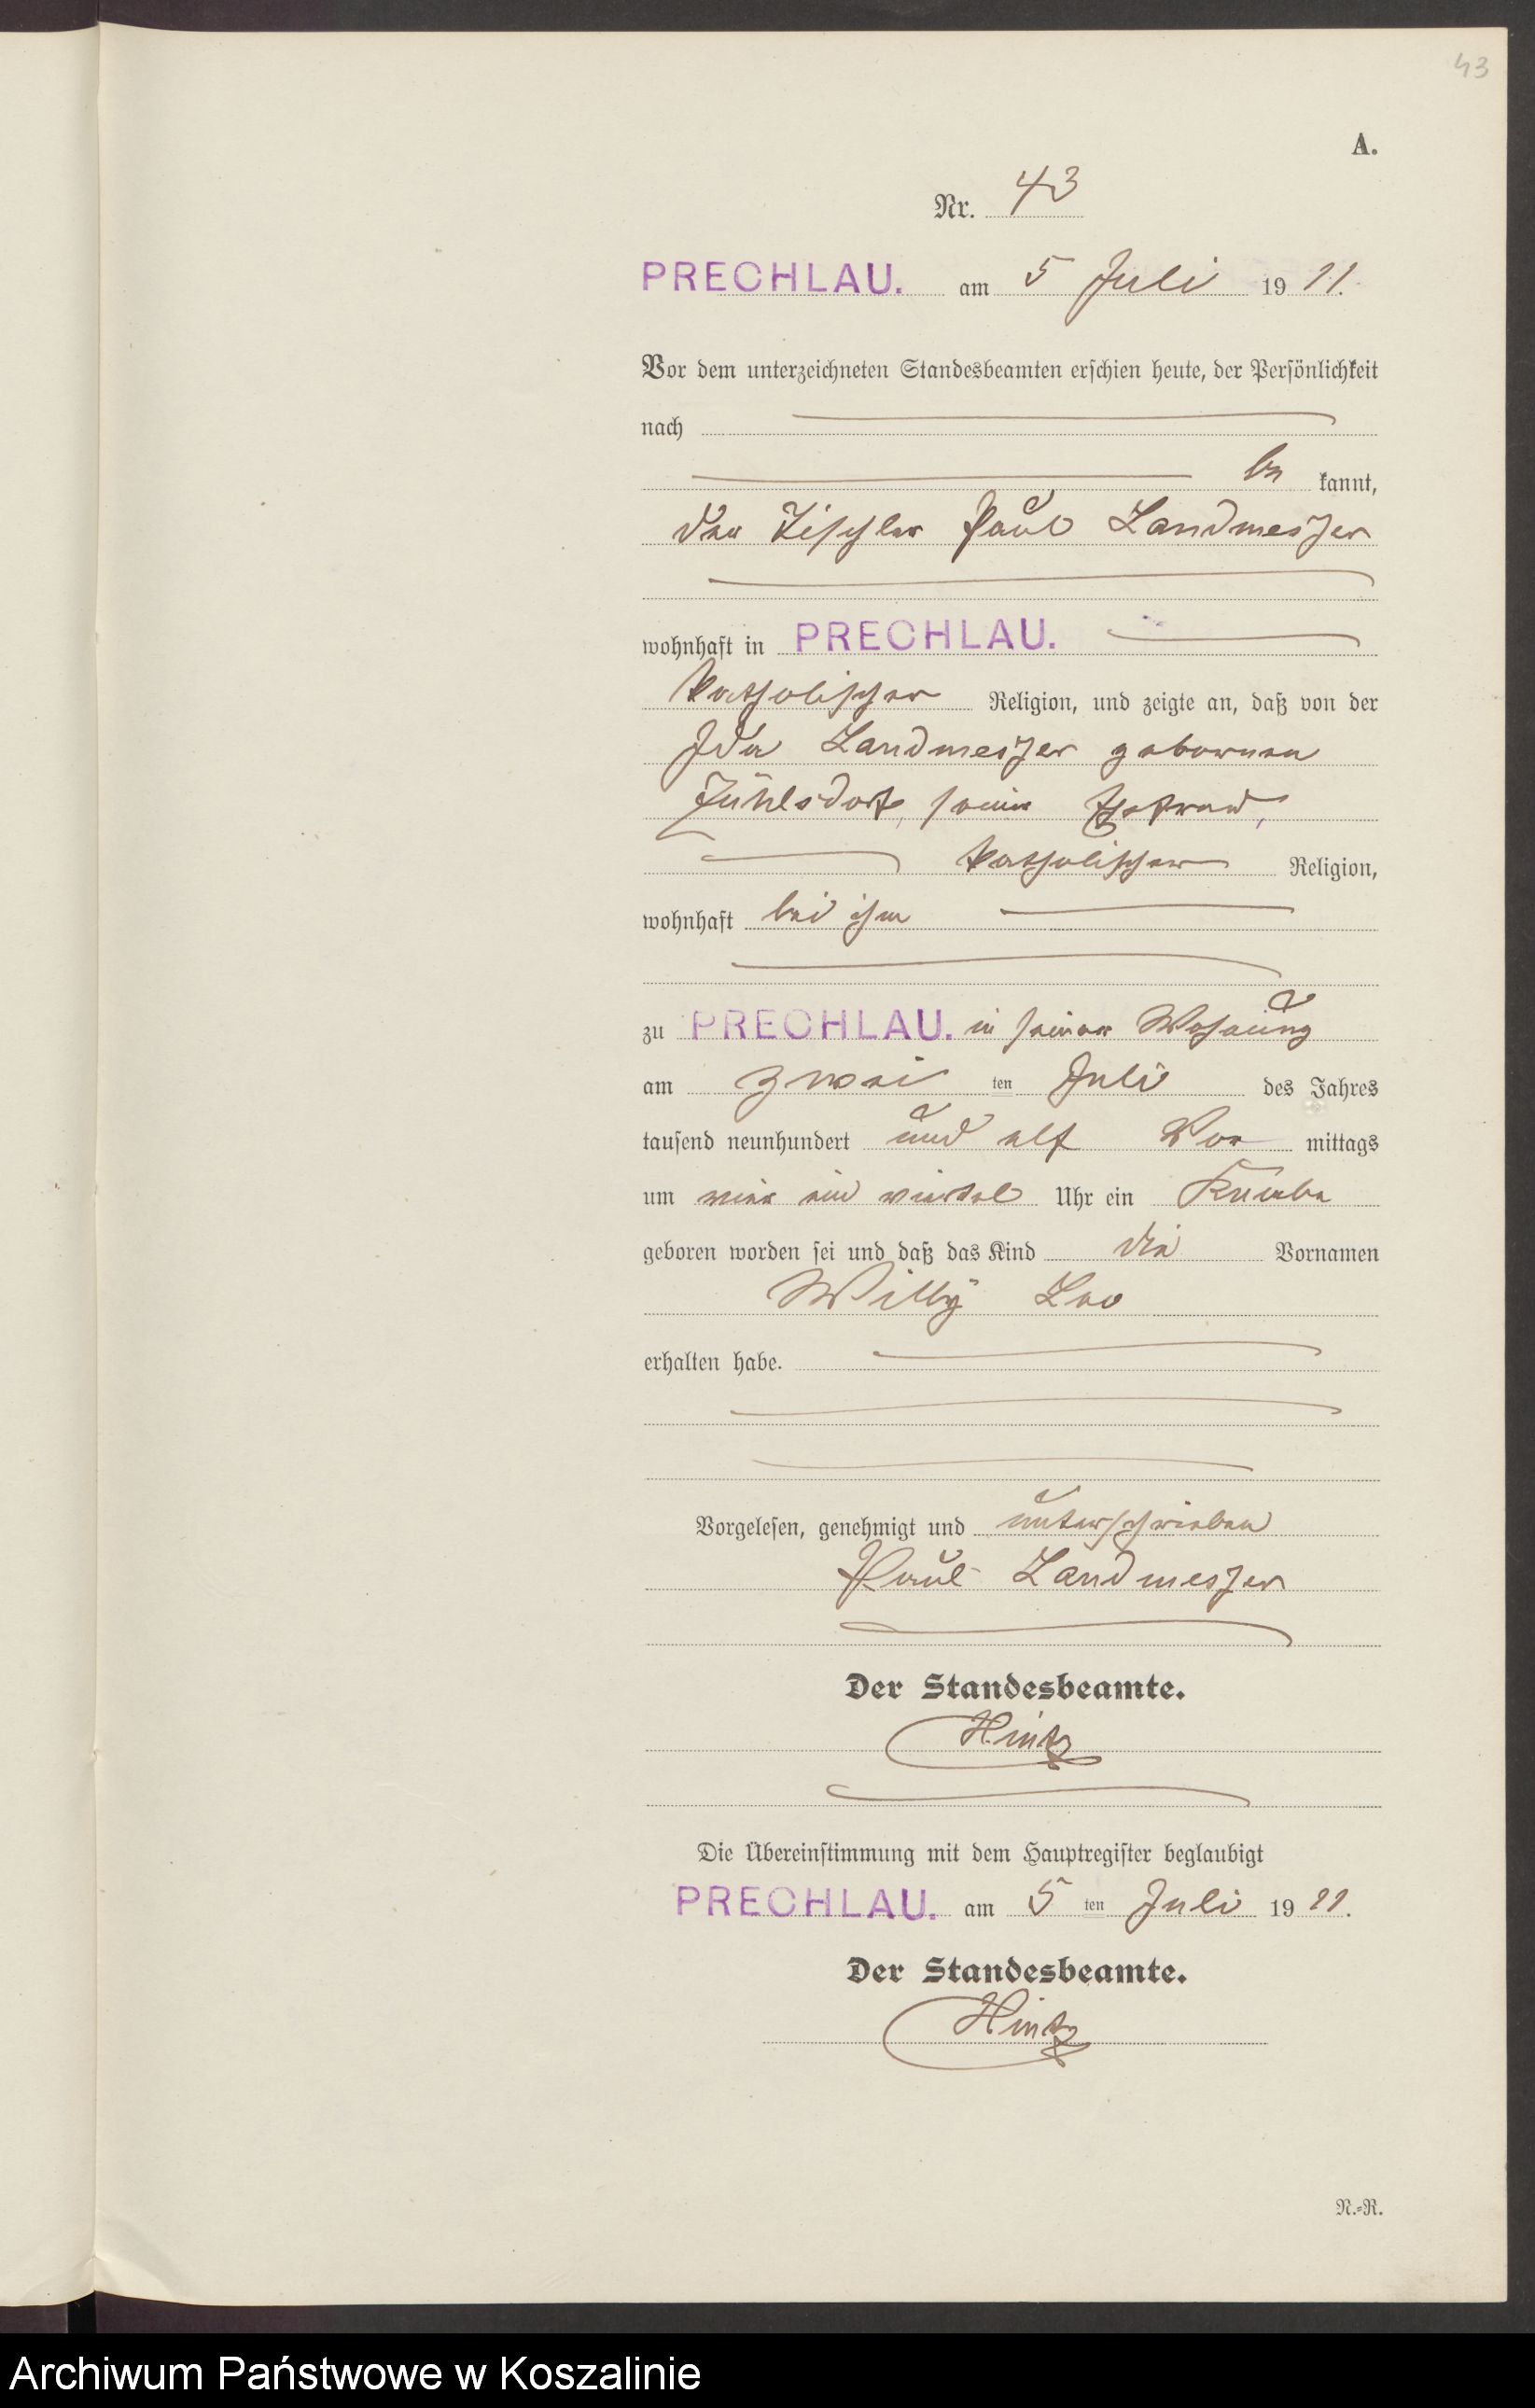 43
A.
Nr. 43
PRECHLAU. am 5 Juli 1911.
Vor dem unterzeichneten Standesbeamten erschien heute, der Persönlichkeit
nach
be kannt,
der Tischler Paul Landmesser
wohnhaft in PRECHLAU.
katholischer Religion, und zeigte an, daß von der
Ida Landmesser geborenen
Zühlsdorf, seiner Ehefrau,
katholischer Religion,
wohnhaft bei ihm
zu PRECHLAU. in seiner Wohnung
am zwei ten Juli des Jahres
tausend neunhundert und elf Vor mittags
um vier ein viertel Uhr ein Knabe
geboren worden sei und daß das Kind die Vornamen
Willy Leo
erhalten habe.
Vorgelesen, genehmigt und unterschrieben
Paul Landmesser
Der Standesbeamte.
Hintz
Die Übereinstimmung mit dem Hauptregister beglaubigt
PRECHLAU. am 5 ten Juli 1911.
Der Standesbeamte.
Hintz
N.=R.
Archiwum Państwowe w Koszalinie